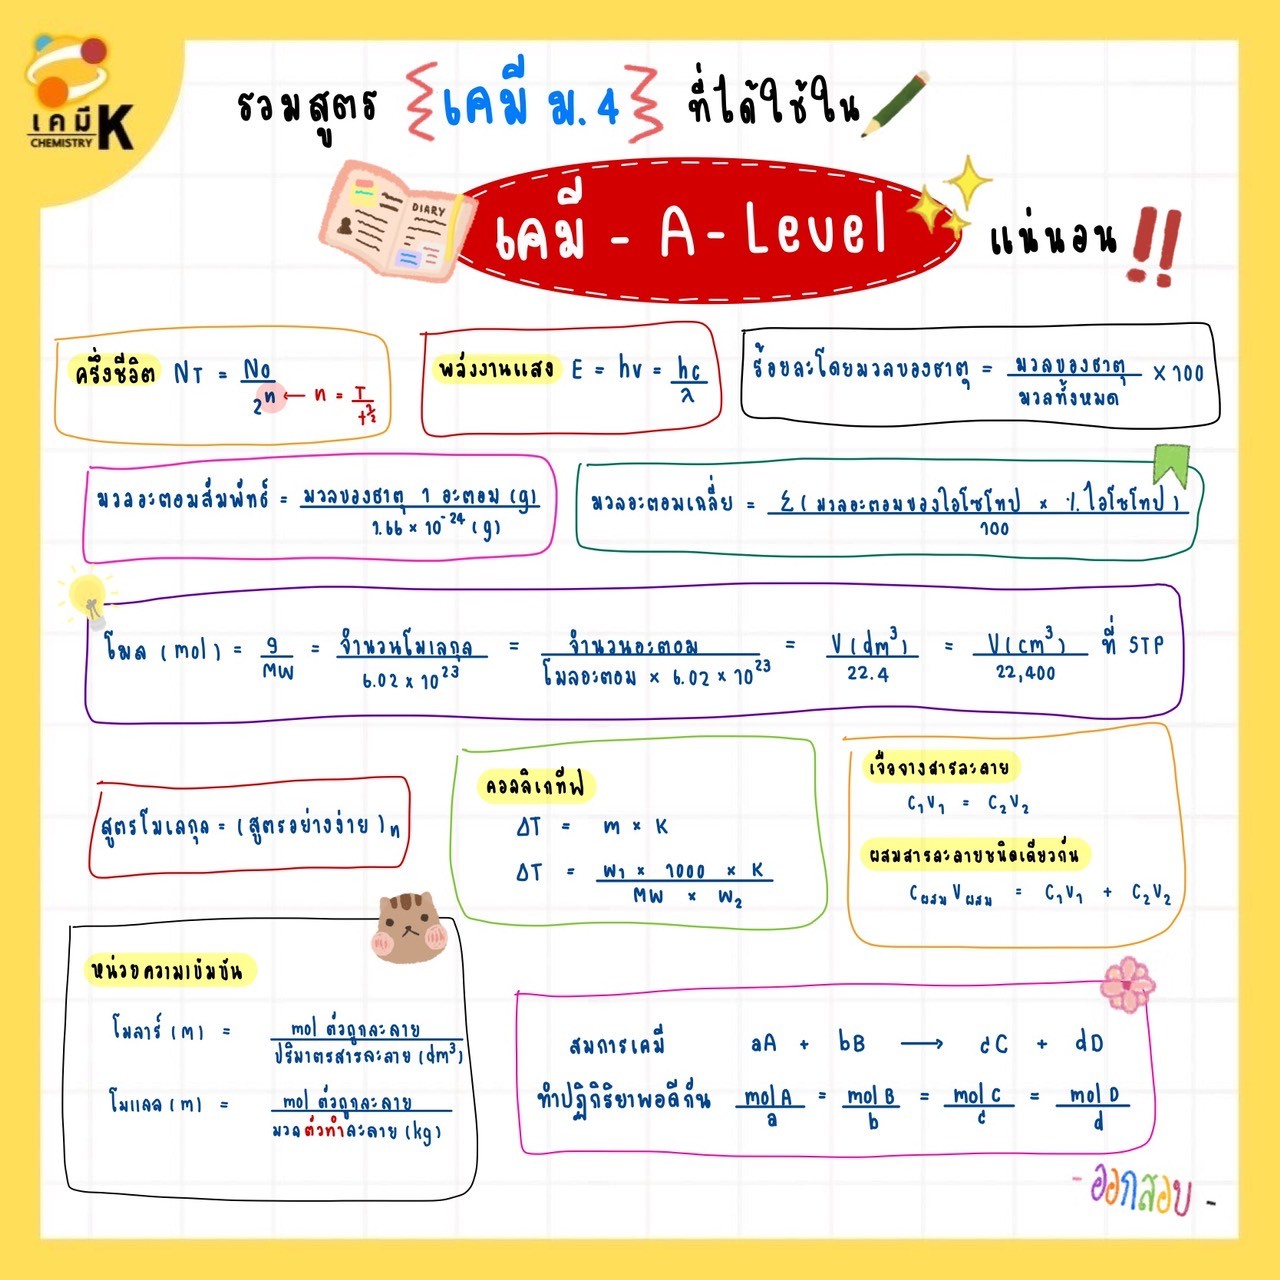 เคมี K
CHEMISTRY
รวมสูตร เคมี ม.4 ที่ได้ใช้ใน
DIARY
เคมี - A - Level แน่นอน !!
ครึ่งชีวิต NT = No / 2^n ← n = T / t½
พลังงานแสง E = hv = hc / λ
ร้อยละโดยมวลของธาตุ = มวลของธาตุ / มวลทั้งหมด × 100
มวลอะตอมสัมพัทธ์ = มวลของธาตุ 1 อะตอม (g) / 1.66 × 10^-24 (g)
มวลอะตอมเฉลี่ย = Σ ( มวลอะตอมของไอโซโทป × % ไอโซโทป ) / 100
โมล (mol) = g / MW = จำนวนโมเลกุล / 6.02 × 10^23 = จำนวนอะตอม / โมลอะตอม × 6.02 × 10^23 = V (dm³) / 22.4 = V (cm³) / 22,400 ที่ STP
สูตรโมเลกุล = (สูตรอย่างง่าย)n
คอลลิเกทีฟ
ΔT = m × K
ΔT = W₁ × 1000 × K / MW × W₂
เจือจางสารละลาย
C₁V₁ = C₂V₂
ผสมสารละลายชนิดเดียวกัน
Cผสม Vผสม = C₁V₁ + C₂V₂
หน่วยความเข้มข้น
โมลาร์ (m) = mol ตัวถูกละลาย / ปริมาตรสารละลาย (dm³)
โมแลล (m) = mol ตัวถูกละลาย / มวลตัวทำละลาย (kg)
สมการเคมี aA + bB → cC + dD
ทำปฏิกิริยาพอดีกัน mol A / a = mol B / b = mol C / c = mol D / d
- ออกสอบ -